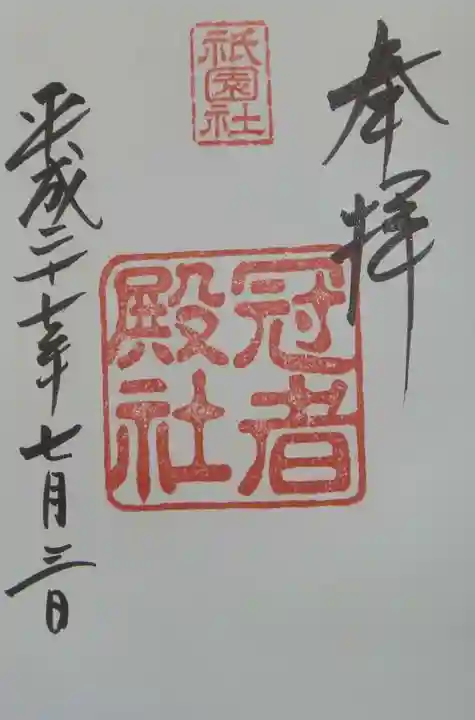 奉拝
祇園社
冠者
殿社
平成二十七年七月三日